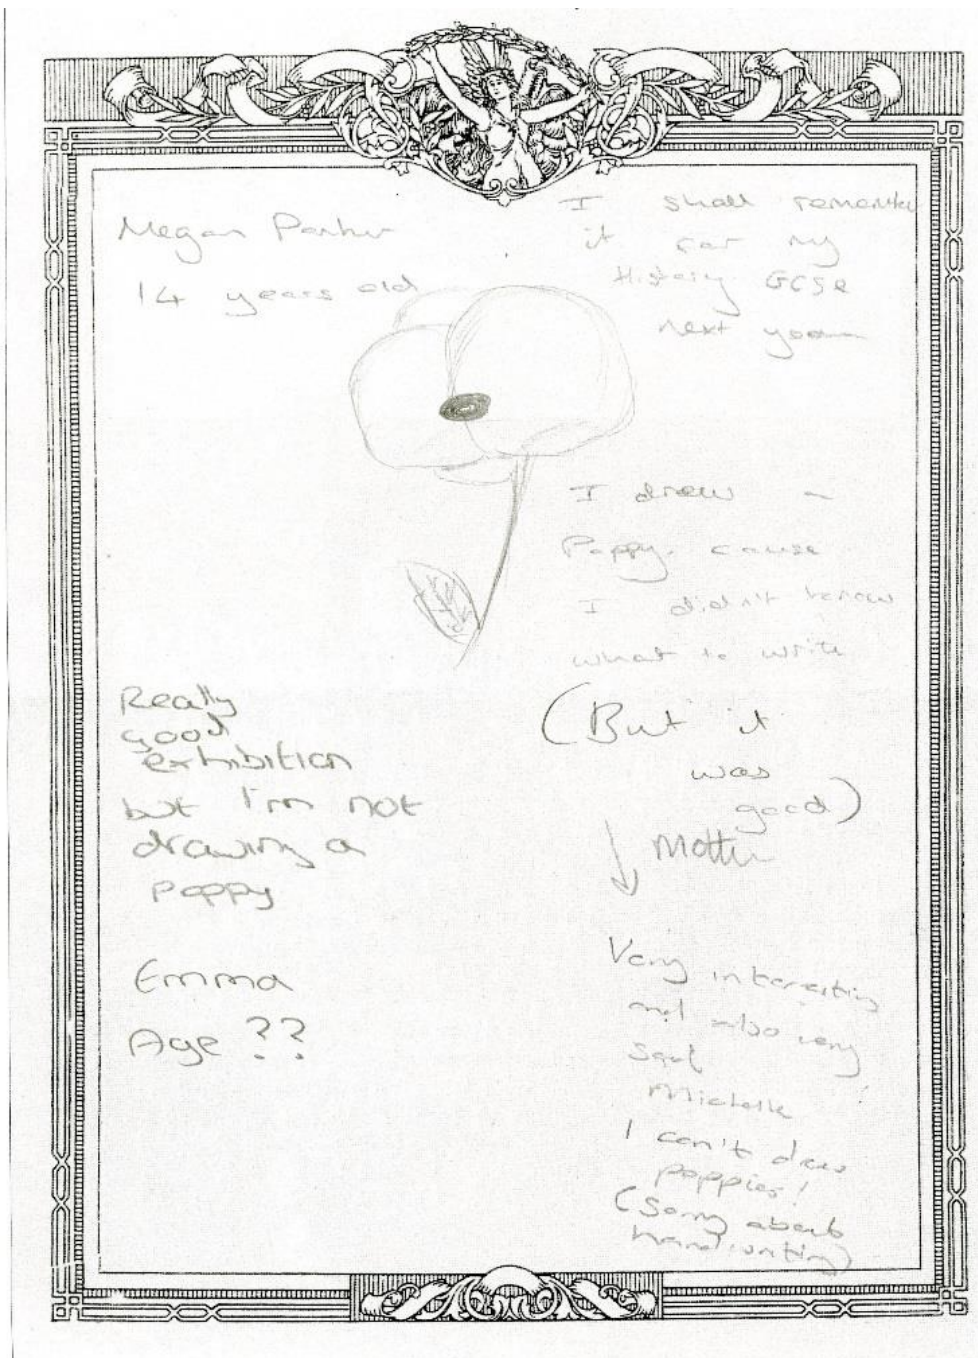 Megan Parker
14 years old
I shall remember
it for my
History GCSE
next year
I drew a
Poppy cause
I didn't know
what to write
(But it
was
good)
Really
good
exhibition
but I'm not
drawing a
poppy
Emma
Age ??
Mother
Very interesting
and also very
sad
Michelle
I can't draw
poppies!
(Sorry about
handwriting)